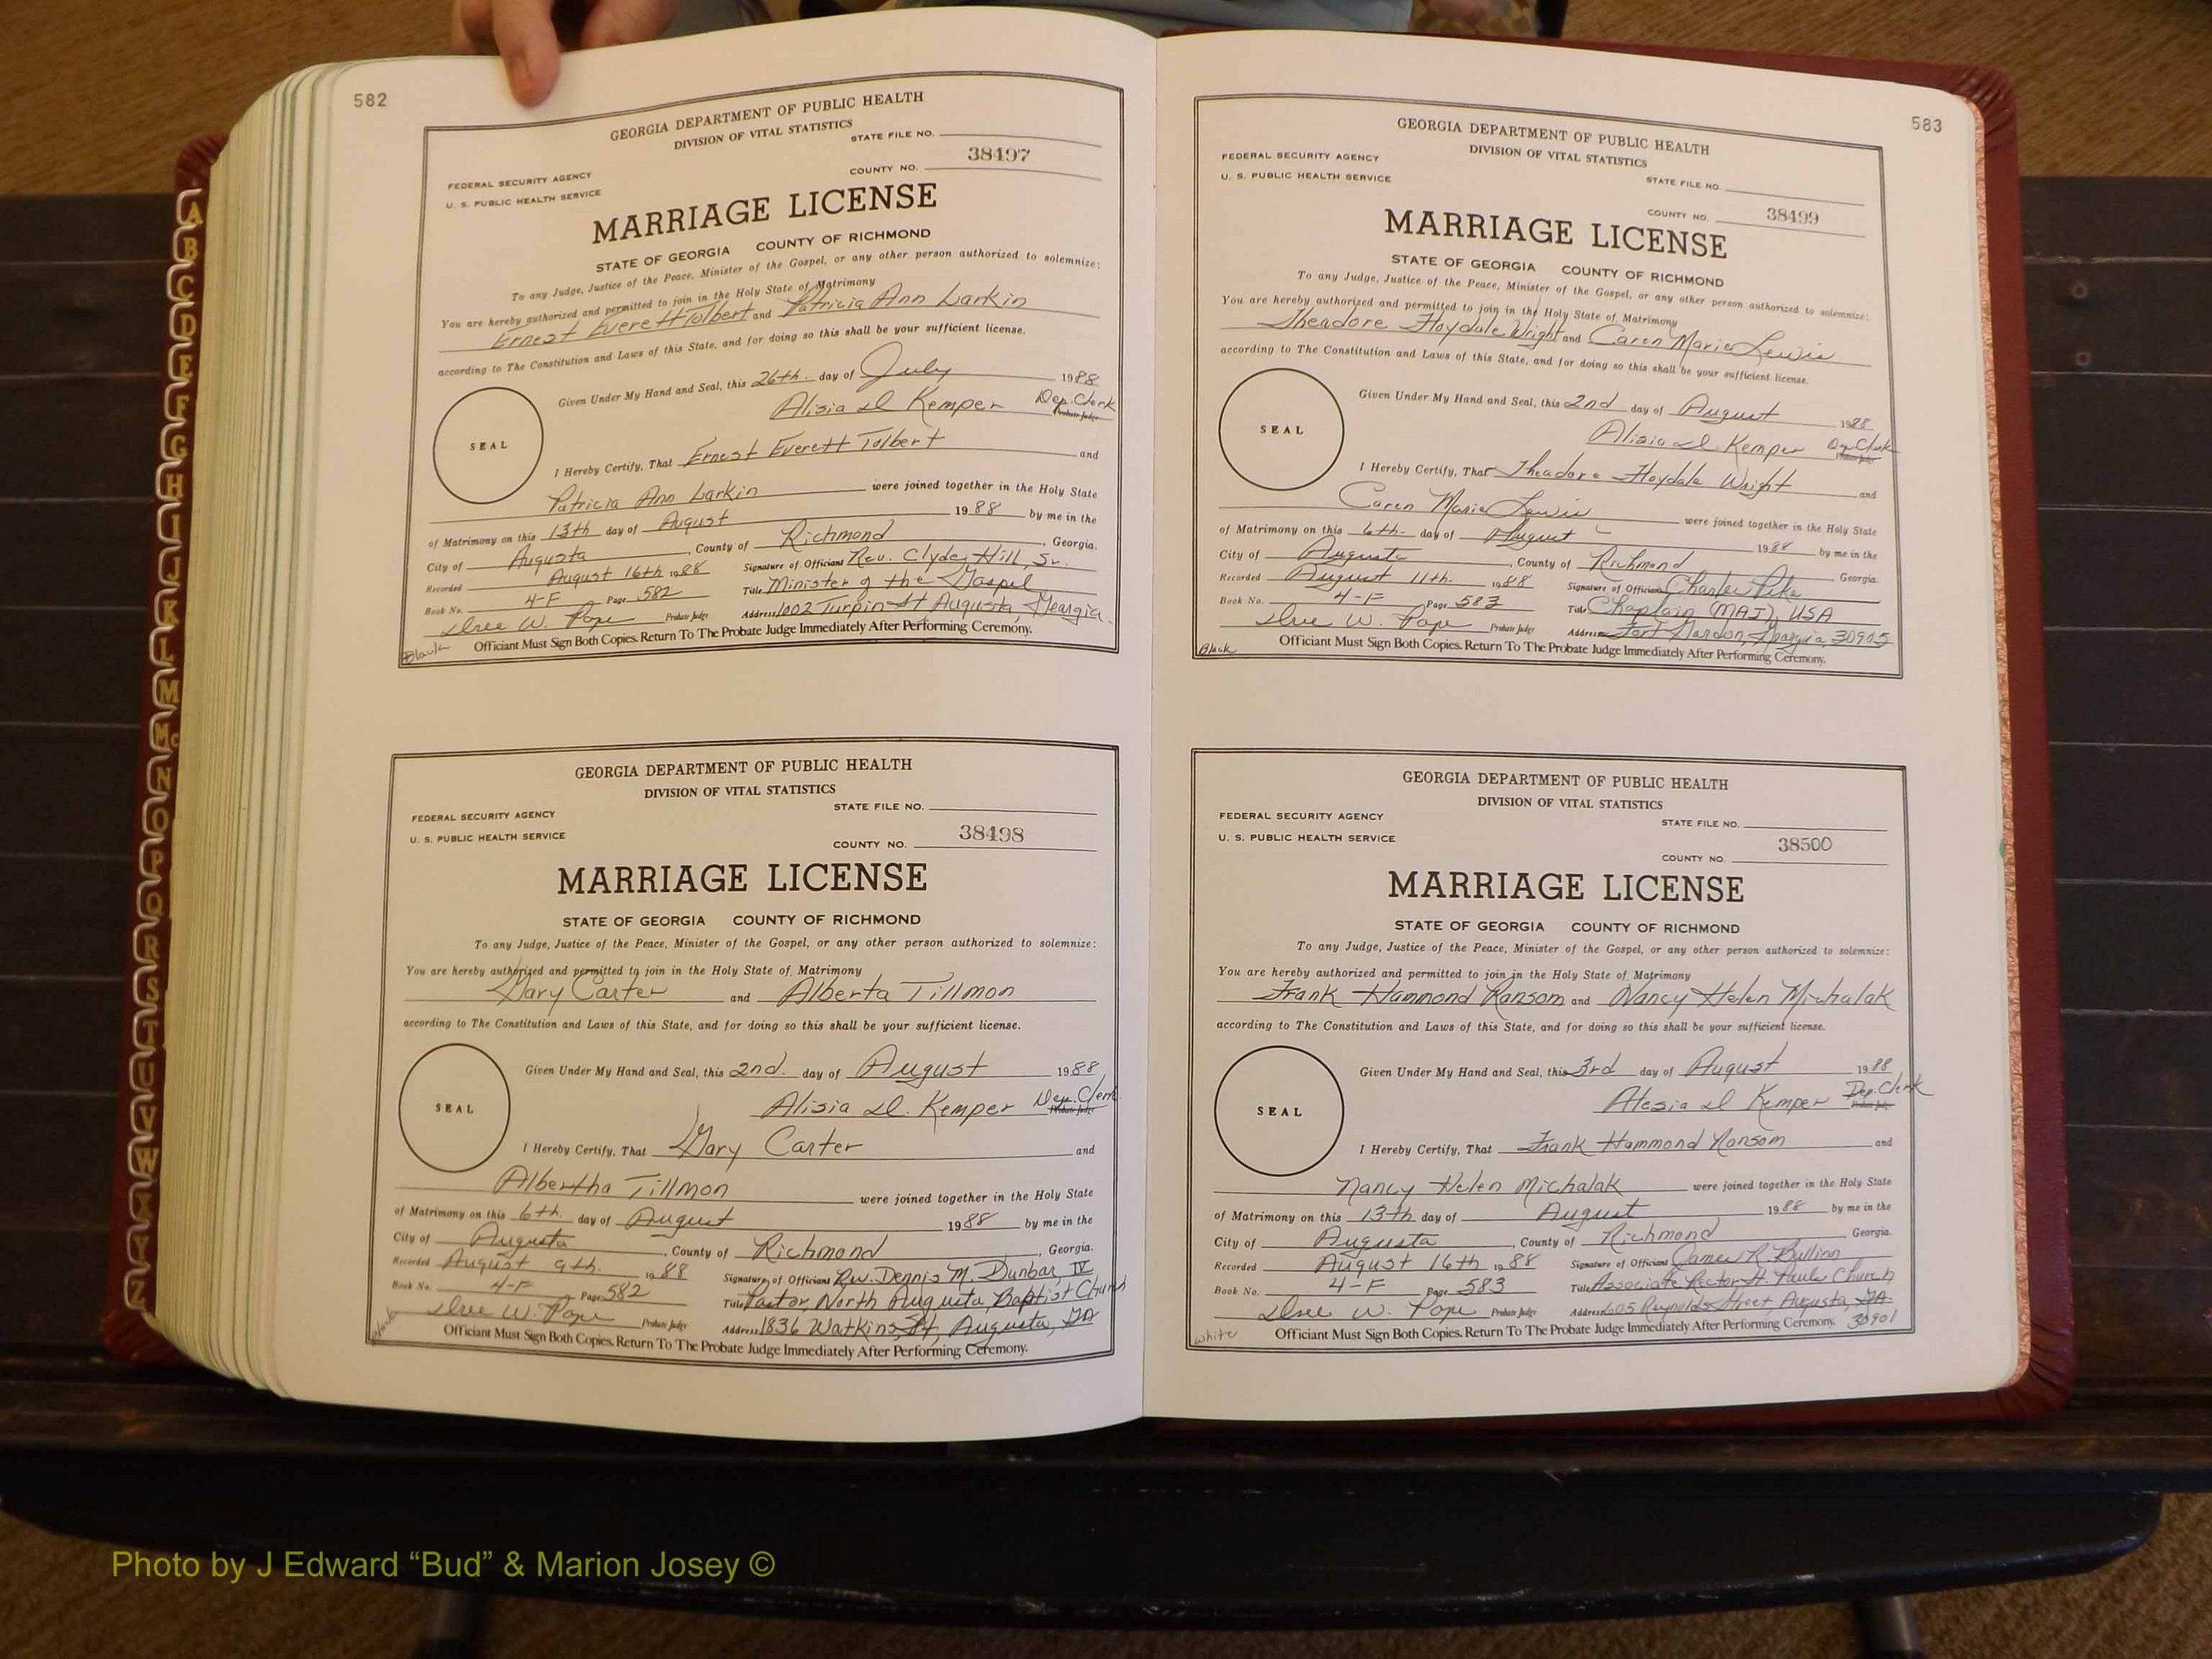 582
GEORGIA DEPARTMENT OF PUBLIC HEALTH
DIVISION OF VITAL STATISTICS
STATE FILE NO.
FEDERAL SECURITY AGENCY
U. S. PUBLIC HEALTH SERVICE
COUNTY NO. 38497
MARRIAGE LICENSE
STATE OF GEORGIA COUNTY OF RICHMOND
To any Judge, Justice of the Peace, Minister of the Gospel, or any other person authorized to solemnize:
You are hereby authorized and permitted to join in the Holy State of Matrimony
Ernest Everett Tolbert and Patricia Ann Larkin
according to The Constitution and Laws of this State, and for doing so this shall be your sufficient license.
Given Under My Hand and Seal, this 26th. day of July 1988
Alisia D Kemper Dep. Clerk
Probate Judge
SEAL
I Hereby Certify, That Ernest Everett Tolbert and
Patricia Ann Larkin were joined together in the Holy State
of Matrimony on this 13th day of August 1988 by me in the
City of Augusta, County of Richmond, Georgia.
Recorded August 16th 1988 Signature of Officiant Rev. Clyde Hill, Sr.
Book No. 4-F Page 582 Title Minister of the Gospel
W. Pope Probate Judge Address 1002 Turpin St Augusta, Georgia.
Black Officiant Must Sign Both Copies. Return To The Probate Judge Immediately After Performing Ceremony.
GEORGIA DEPARTMENT OF PUBLIC HEALTH
DIVISION OF VITAL STATISTICS
FEDERAL SECURITY AGENCY STATE FILE NO.
U. S. PUBLIC HEALTH SERVICE
COUNTY NO. 38498
MARRIAGE LICENSE
STATE OF GEORGIA COUNTY OF RICHMOND
To any Judge, Justice of the Peace, Minister of the Gospel, or any other person authorized to solemnize:
You are hereby authorized and permitted to join in the Holy State of Matrimony
Gary Carter and Alberta Tillmon
according to The Constitution and Laws of this State, and for doing so this shall be your sufficient license.
Given Under My Hand and Seal, this 2nd. day of August 1988
Alisia D. Kemper Dep. Clerk
Probate Judge
SEAL
I Hereby Certify, That Gary Carter and
Albertha Tillmon were joined together in the Holy State
of Matrimony on this 6th. day of August 1988 by me in the
City of Augusta, County of Richmond, Georgia.
Recorded August 9th. 1988 Signature of Officiant Rev. Dennis M. Dunbar, IV
Book No. 4-F Page 582 Title Pastor, North Augusta, Baptist Church
W. Pope Probate Judge Address 1836 Watkins St, Augusta, GA
black Officiant Must Sign Both Copies. Return To The Probate Judge Immediately After Performing Ceremony.
583
GEORGIA DEPARTMENT OF PUBLIC HEALTH
DIVISION OF VITAL STATISTICS
FEDERAL SECURITY AGENCY
U. S. PUBLIC HEALTH SERVICE
STATE FILE NO.
COUNTY NO. 38499
MARRIAGE LICENSE
STATE OF GEORGIA COUNTY OF RICHMOND
To any Judge, Justice of the Peace, Minister of the Gospel, or any other person authorized to solemnize:
You are hereby authorized and permitted to join in the Holy State of Matrimony
Theadore Floydale Wright and Caren Marie Lewis
according to The Constitution and Laws of this State, and for doing so this shall be your sufficient license.
Given Under My Hand and Seal, this 2nd day of August 1988
Alisia D Kemper Dep. Clerk
Probate Judge
SEAL
I Hereby Certify, That Theadore Floydale Wright and
Caren Marie Lewis were joined together in the Holy State
of Matrimony on this 6th. day of August 1988 by me in the
City of Augusta, County of Richmond Georgia.
Recorded August 11th. 1988 Signature of Officiant Charles Pike
Book No. 4-F Page 583 Title Chaplain (MAJ), USA
W. Pope Probate Judge Address Fort Gordon, Georgia 30905
Black Officiant Must Sign Both Copies. Return To The Probate Judge Immediately After Performing Ceremony.
GEORGIA DEPARTMENT OF PUBLIC HEALTH
DIVISION OF VITAL STATISTICS
FEDERAL SECURITY AGENCY STATE FILE NO.
U. S. PUBLIC HEALTH SERVICE
COUNTY NO. 38500
MARRIAGE LICENSE
STATE OF GEORGIA COUNTY OF RICHMOND
To any Judge, Justice of the Peace, Minister of the Gospel, or any other person authorized to solemnize:
You are hereby authorized and permitted to join in the Holy State of Matrimony
Frank Hammond Ransom and Nancy Helen Michalak
according to The Constitution and Laws of this State, and for doing so this shall be your sufficient license.
Given Under My Hand and Seal, this 3rd day of August 1988
Alesia D Kemper Dep. Clerk
Probate Judge
SEAL
I Hereby Certify, That Frank Hammond Ransom and
Nancy Helen Michalak were joined together in the Holy State
of Matrimony on this 13th day of August 1988 by me in the
City of Augusta, County of Richmond Georgia.
Recorded August 16th 1988 Signature of Officiant James R. Bullion
Book No. 4-F Page 583 Title Associate Rector St. Pauls Church
W. Pope Probate Judge Address 605 Reynolds Street, Augusta, GA
white Officiant Must Sign Both Copies. Return To The Probate Judge Immediately After Performing Ceremony. 30901
A
B
C
D
E
F
G
H
I
J
K
L
M
Mc
N
O
P
Q
R
S
T
U
V
W
X
Y
Z
Photo by J Edward “Bud” & Marion Josey ©